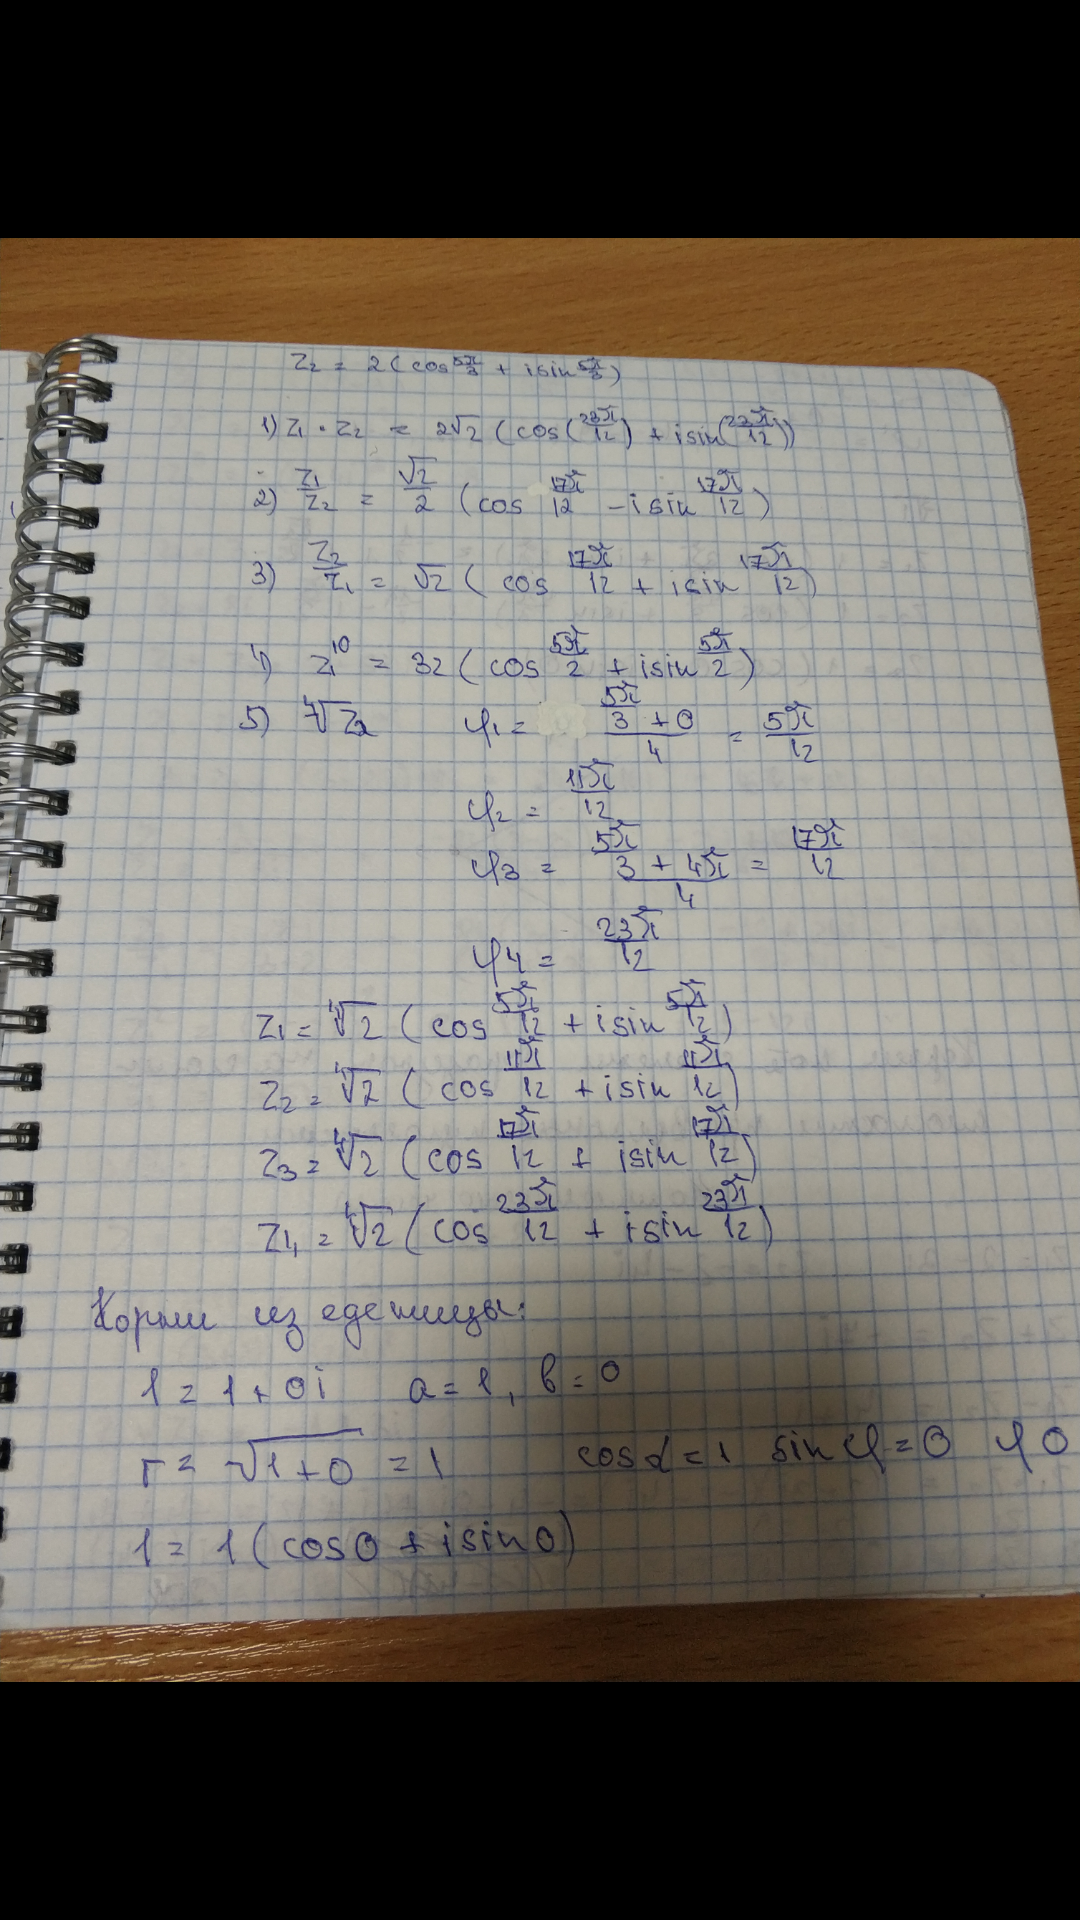 z₂ = 2(cos 5π/3 + i sin 5π/3)
1) z₁ · z₂ = 2√2 (cos(23π/12) + i sin(23π/12))
2) z₁/z₂ = √2/2 (cos 17π/12 - i sin 17π/12)
3) z₂/z₁ = √2 (cos 17π/12 + i sin 17π/12)
4) z₁¹⁰ = 32 (cos 5π/2 + i sin 5π/2)
5) ⁴√z₂ φ₁ = (5π/3 + 0)/4 = 5π/12
φ₂ = 11π/12
φ₃ = (5π/3 + 4π)/4 = 17π/12
φ₄ = 23π/12
z₁ = ⁴√2 (cos 5π/12 + i sin 5π/12)
z₂ = ⁴√2 (cos 11π/12 + i sin 11π/12)
z₃ = ⁴√2 (cos 17π/12 + i sin 17π/12)
z₄ = ⁴√2 (cos 23π/12 + i sin 23π/12)
Корни из еденицы:
1 = 1 + 0i a = 1, b = 0
r = √(1+0) = 1 cos α = 1 sin φ = 0 φ 0
1 = 1 (cos 0 + i sin 0)